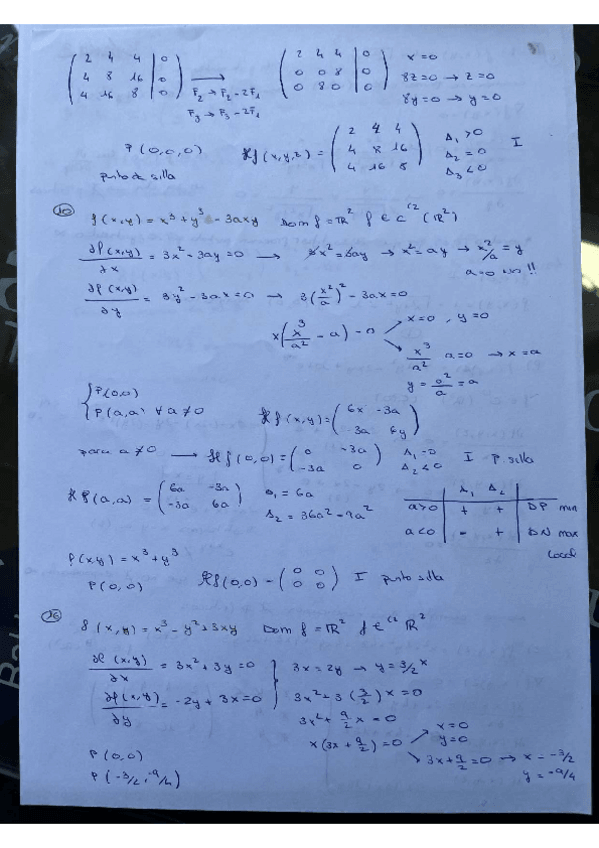 ( 2 4 4 | 0 ; 4 8 16 | 0 ; 4 16 8 | 0 ) → F2 → F2 - 2F1 , F3 → F3 - 2F1 ( 2 4 4 | 0 ; 0 0 8 | 0 ; 0 8 0 | 0 )
x = 0
8z = 0 → z = 0
8y = 0 → y = 0
P(0,0,0) Hf(x,y,z) = ( 2 4 4 ; 4 8 16 ; 4 16 8 ) Δ1 > 0 Δ2 = 0 Δ3 < 0 I
punto de silla
10 f(x,y) = x³ + y³ - 3axy Dom f = ℝ² f ∈ C² (ℝ²)
∂f(x,y)/∂x = 3x² - 3ay = 0 → 3x² = 3ay → x² = ay → x²/a = y
a=0 no!!
∂f(x,y)/∂y = 3y² - 3ax = 0 → 3(x²/a)² - 3ax = 0
x(x³/a² - a) = 0
x=0 , y=0
x³/a² a=0 → x=a
y = a²/a = a
{ P(0,0)
P(a,a) ∀ a≠0
Hf(x,y) = ( 6x -3a ; -3a 6y )
para a≠0 → Hf(0,0) = ( 0 -3a ; -3a 0 ) Δ1 = 0 Δ2 < 0 I P silla
Hf(a,a) = ( 6a -3a ; -3a 6a ) Δ1 = 6a
Δ2 = 36a² - 9a²
Δ1 Δ2
a>0 + + DP min
a<0 - + DN max
local
f(x,y) = x³ + y³
P(0,0) Hf(0,0) = ( 0 0 ; 0 0 ) I punto silla
26 f(x,y) = x³ - y² + 3xy Dom f = ℝ² f ∈ C² ℝ²
∂f(x,y)/∂x = 3x² + 3y = 0 } 3x = 2y → y = 3/2 x
∂f(x,y)/∂y = -2y + 3x = 0 3x² + 3(3/2)x = 0
3x² + 9/2 x = 0
x(3x + 9/2) = 0
x=0
y=0
3x + 9/2 = 0 → x = -3/2
y = -9/4
P(0,0)
P(-3/2, -9/4)